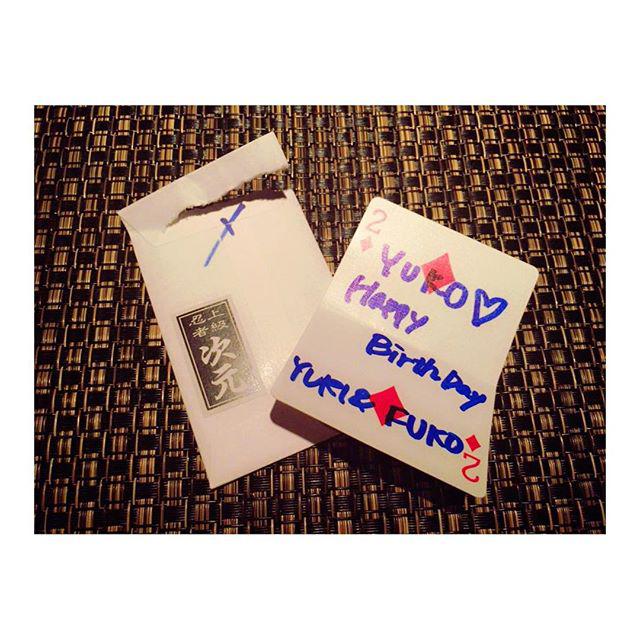 〆
上級
忍者
次元
2
YUKO♡
Happy
BirthDay
YUKI& FUKO
2